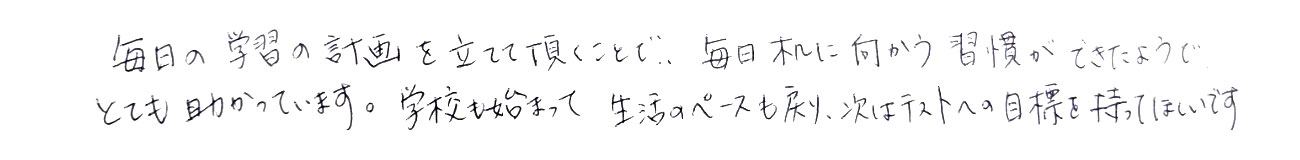 毎日の学習の計画を立てて頂くことで、毎日机に向かう習慣ができたようで
とても助かっています。学校も始まって生活のペースも戻り、次はテストへの目標を持ってほしいです